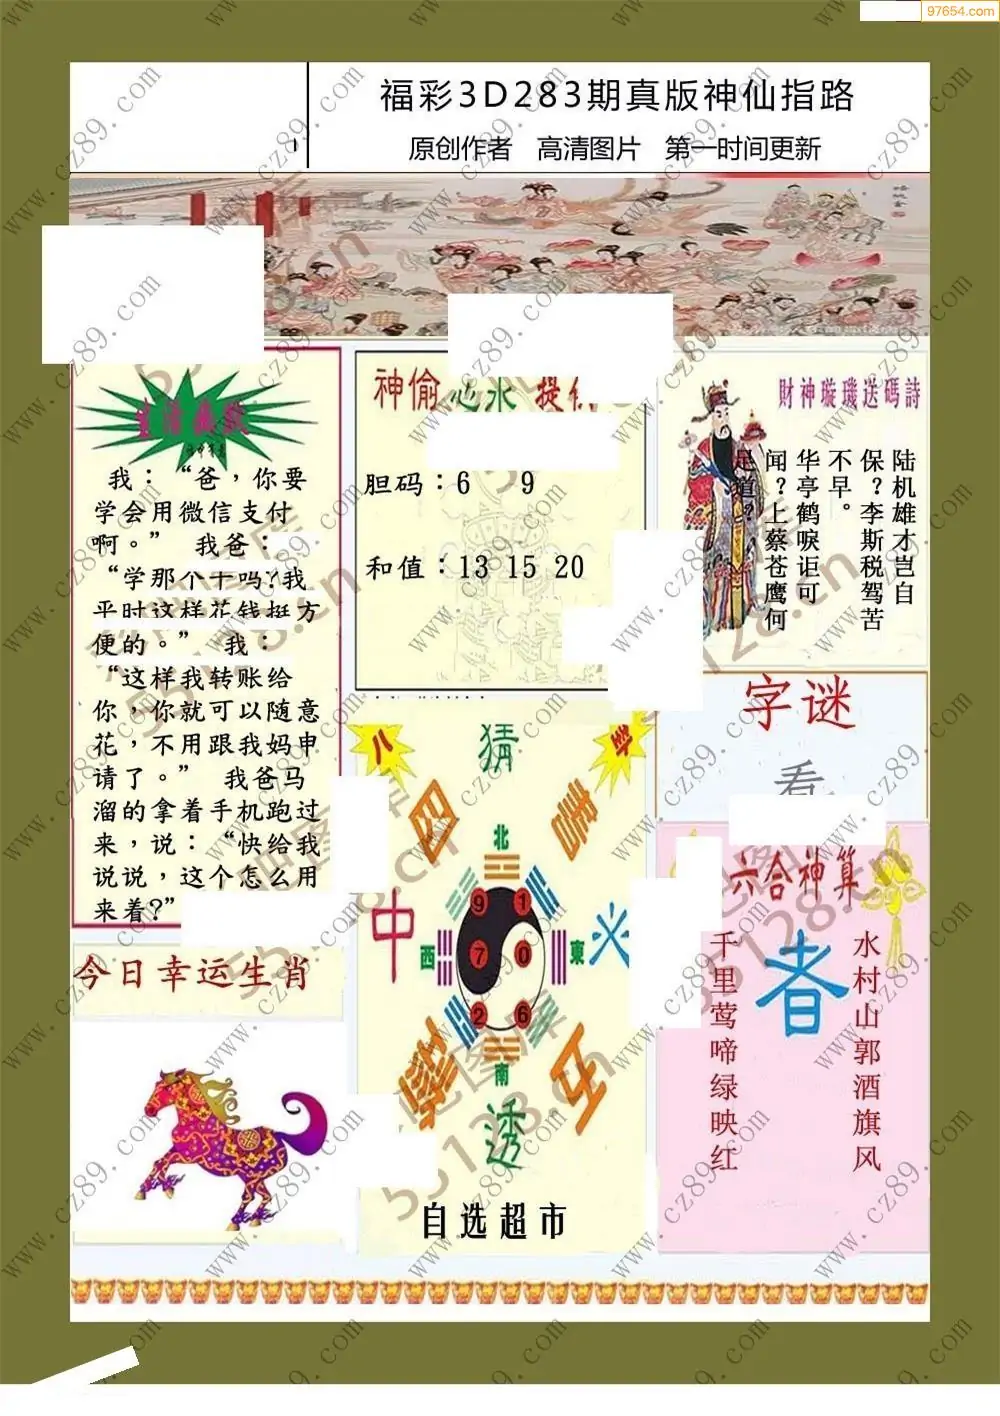 97654.com
福彩3D283期真版神仙指路
原创作者 高清图片 第一时间更新
我：“爸，你要
学会用微信支付
啊。” 我爸：
“学那个干吗?我
平时这样花钱挺方
便的。” 我：
“这样我转账给
你，你就可以随意
花，不用跟我妈申
请了。” 我爸马
溜的拿着手机跑过
来，说：“快给我
说说，这个怎么用
来着?”
今日幸运生肖
神偷
胆码：6 9
和值：13 15 20
八
卦
猜
图
者
北
中
西
東
火
9 1
7 0
2 6
南
透
自选超市
財神璇璣送碼詩
陆机雄才岂自
保？李斯税驾苦
不早。
华亭鹤唳讵可
闻？上蔡苍鹰何
足道？
字谜
六合神算
水村山郭酒旗风
者
千里莺啼绿映红
www.cz89.com
55128.cn